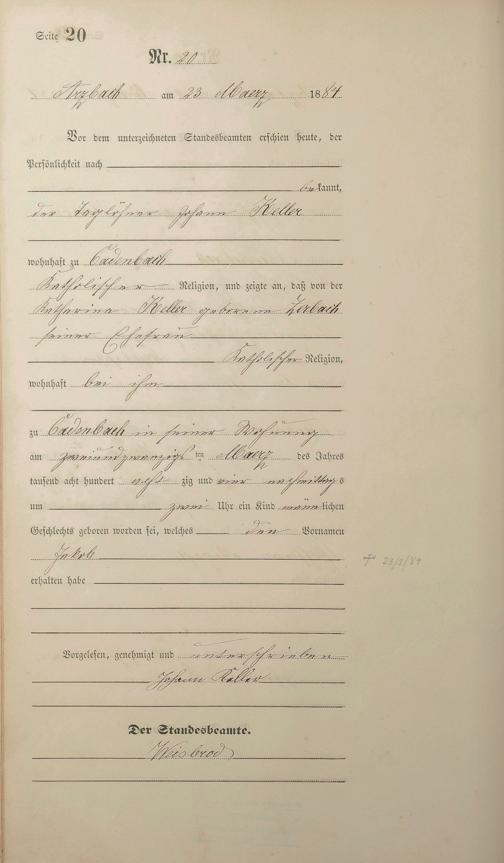 Seite 20
Nr. 20
Arzbach am 23 Maerz 1884
Vor dem unterzeichneten Standesbeamten erschien heute, der
Persönlichkeit nach
bekannt,
der Taglöhner Johann Keller
wohnhaft zu Cadenbach
Katholischer Religion, und zeigte an, daß von der
Katharina Keller geborene Zerbach
seiner Ehefrau
Katholischer Religion,
wohnhaft bei ihm
zu Cadenbach in seiner Wohnung
am zweiundzwanzigsten Maerz des Jahres
tausend acht hundert achtzig und vier nachmittags
um zwei Uhr ein Kind männlichen
Geschlechts geboren worden sei, welches den Vornamen
Jakob
+ 23/3/89
erhalten habe
Vorgelesen, genehmigt und unterschrieben
Johann Keller
Der Standesbeamte.
Weisbrod